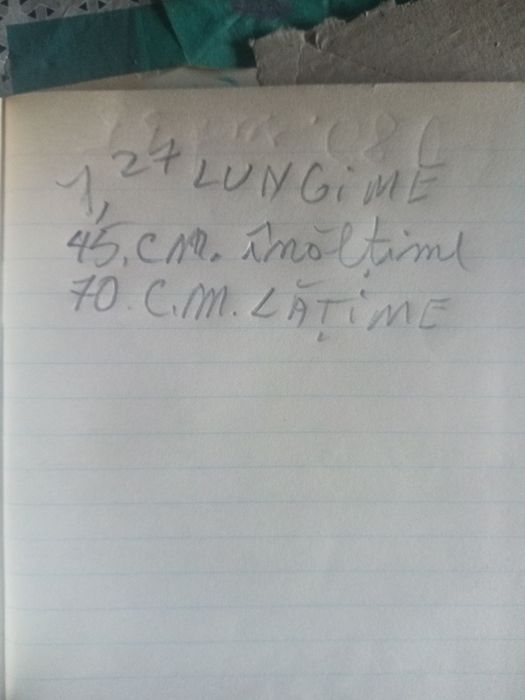 1,27 LUNGiME
45.CM. înălțime
70.C.M. LĂȚiME